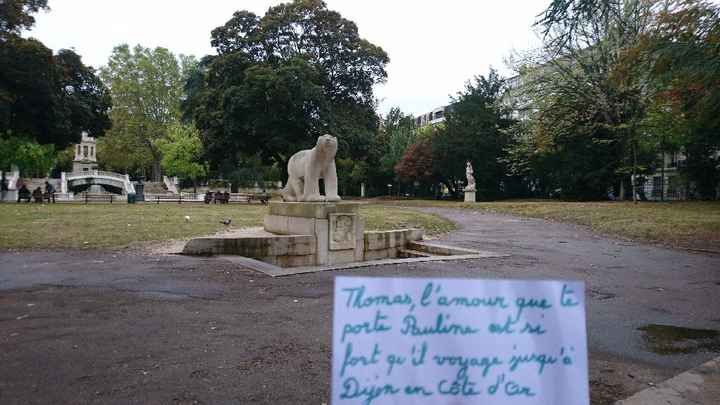 Thomas, l'amour que te
porte Pauline est si
fort qu'il voyage jusqu'à
Dijon en Côte d'Or